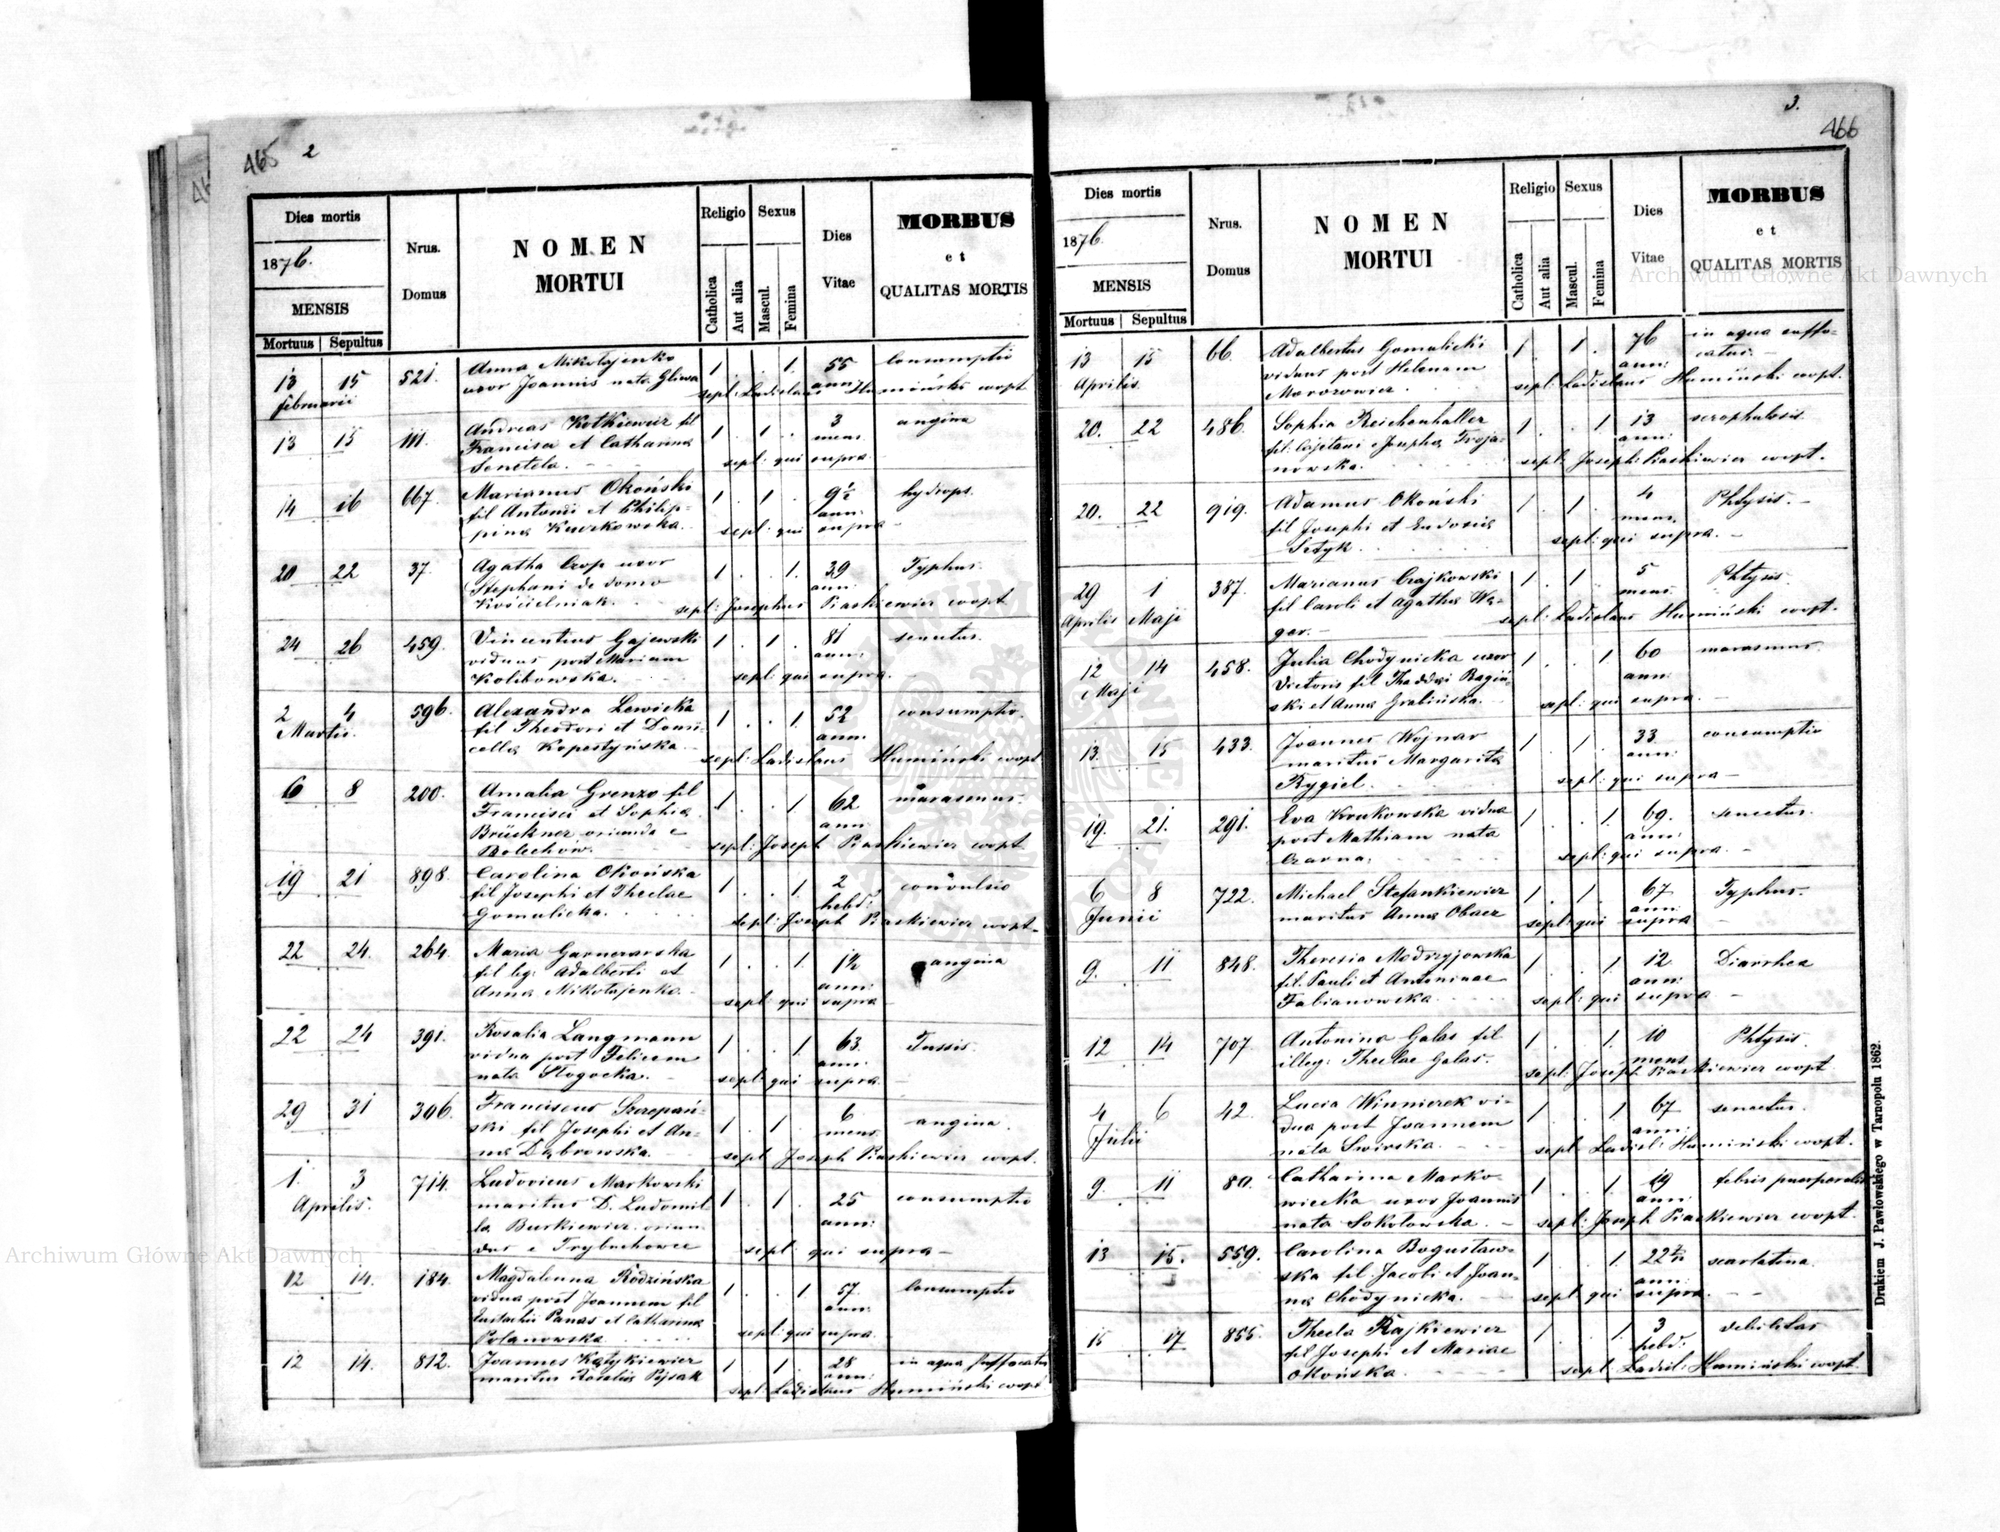 465 2
Dies mortis
1876.
MENSIS
Mortuus Sepultus
Nrus.
Domus
NOMEN
MORTUI
Religio
Catholica
Aut alia
Sexus
Mascul.
Femina
Dies
Vitae
MORBUS
et
QUALITAS MORTIS
13 15 521. Anna Mikołajenko 1 . . 1. 55 Consumptio
februarii uxor Joannis nata Gliwa ann.
sepl: Ladislaus Humiński coopt
13 15 111. Andreas Kotkiewicz fil 1 . 1 . . 3 angina
Francisci et Catharina mens.
Senetela. sepl: qui supra
14 16 667. Marianus Okoński 1 . 1 . 9½ hydrops.
fil Antoni et Philip- ann.
pina Kuczkowska. sepl: qui supra
20 22 37. Agatha Czop uxor 1 . . 1. 39 Typhus.
Stephani de domo ann.
Kościelniak. sepl: Josephus Piaskiewicz coopt
24 26 459. Vincentius Gajewski 1 . 1 . 81 senectus.
viduus post Mariam ann.
Kolibowska. sepl: qui supra.
2 4 596. Alexandra Lewicka 1 . . 1. 52 consumptio.
Martii. fil Theodori et Domi- ann.
cella Kopestyńska. sepl: Ladislaus Humiński coopt
6 8 200. Amalia Grenzo fil 1 . . 1. 62 marasmus.
Francisci et Sophia ann.
Brückner oriunda e
Bolechów. sepl: Joseph Piaskiewicz coopt
19 21 898. Carolina Okońska 1 . . 1. 2 convulsio
fil Josephi et Theclae hebd:
Gomulicka. sepl: Joseph Piaskiewicz coopt.
22 24. 264. Maria Garncarska 1 . . 1. 1½ angina
fil leg: Adalberti et ann:
Anna Mikołajenko. sepl: qui supra
22 24 391. Rosalia Langmann 1 . . 1. 63. Tussis.
vidua post Felicem ann:
nata Stogocka. sepl: qui supra.
29 31 306. Franciscus Szczepań- 1 . 1 . 6 angina.
ski fil Josephi et An- mens
na Dąbrowska. sepl Joseph Piaskiewicz coopt.
1. 3 714. Ludovicus Markowski 1 . 1 . 25 consumptio
Aprilis. maritus D. Ludomil ann:
la Burkiewicz oriun
dus e Trybuchowce sepl: qui supra
12 14. 184. Magdalenna Rodzińska 1 . . 1 57. Consumptio
vidua post Joannem fil ann:
Eustachii Panas et Catharina
Polanowska. sepl: qui supra.
12 14. 812. Joannes Katykiewicz 1 . 1 . 28 in aqua suffocatus
maritus Rosalia Pysak ann:
sepl: Ladislaus Humiński coopt
3.
466
Dies mortis
1876.
MENSIS
Mortuus Sepultus
Nrus.
Domus
NOMEN
MORTUI
Religio
Catholica
Aut alia
Sexus
Mascul.
Femina
Dies
Vitae
MORBUS
et
QUALITAS MORTIS
13 15 66. Adalbertus Gomulicki 1 . 1 . 76 in aqua suffo-
Aprilis viduus post Helenam ann: catus.
Morozowicz sepl: Ladislaus Humiński coopt.
20. 22 486. Sophia Reichenhaller 1 . . 1 13 scrophulosis.
fil: Cajetani Josepha Troja- ann:
nowska. sepl: Joseph: Piaskiewicz coopt.
20. 22 919. Adamus Okoński 1 . 1 . 4 Phtysis.
fil Josephi et Eudosia mens.
Sedyk sepl: qui supra.
29 1 387. Marianus Czajkowski 1 . 1 . 5 Phtysis
Aprilis Maji fil Caroli et Agatha Wę- mens.
ger. sepl: Ladislaus Humiński coopt.
12 14 458. Julia Chodynicka uxor 1 . . 1. 60 marasmus
Maji Victoris fil Thaddaei Bagiń- ann:
ski et Anna Grabińska. sepl: qui supra.
13. 15 433. Joannes Wojnar 1 . 1 . 33 consumptio
maritus Margarita ann:
Rygiel. sepl: qui supra
19. 21. 291. Eva Krukowska vidua 1 . . 1. 69. senectus.
post Mathiam nata ann:
Czarna. sepl: qui supra.
6 8 722. Michael Stefankiewicz 1 . 1 . 67 Typhus
Junii maritus Anna Obacz ann:
sepl: qui supra
9. 11 848. Theresia Modrzyjowska 1 . . 1. 12 Diarrhea
fil. Pauli et Antoninae ann:
Fabianowska sepl: qui supra
12 14 707. Antonina Galas fil 1 . . 1. 10 Phtysis.
illeg: Theclae Galas. mens
sepl: Joseph Piaskiewicz coopt
4 6 42. Lucia Winnierek vi- 1 . . 1 67 senectus.
Julii dua post Joannem ann:
nata Swirska. sepl: Ladisl: Humiński coopt.
9. 11 80. Catharina Marko 1 . . 1. 19 febris puerperalis
wiecka uxor Joannis ann:
nata Sokołowska. sepl: Joseph Piaskiewicz coopt.
13 15. 559. Carolina Bogusław- 1 . . 1. 22 scarlatina.
ska fil Jacobi et Joan- ann:
na Chodynicka. sepl: qui supra.
15 17 855. Thecla Rajkiewicz 1 . . 1. 3 debilitas
fil Josephi et Mariae hebd:
Okońska. sepl: Ladisl: Humiński coopt.
Drukiem J. Pawłowskiego w Tarnopolu 1862.
Archiwum Główne Akt Dawnych
Archiwum Główne Akt Dawnych